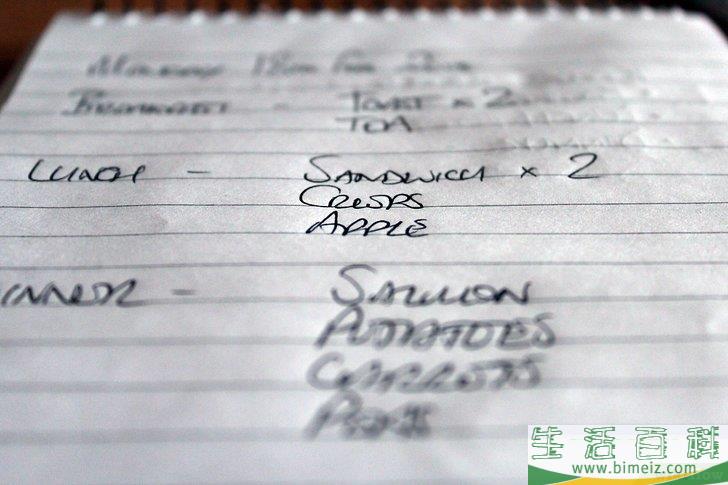 Monday 18th Feb
Breakfast - Toast x 2
Tea
Lunch - Sandwich x 2
Crisps
Apple
inner - Salmon
Potatoes
Carrots
Peas
生活百科
www.bimeiz.com